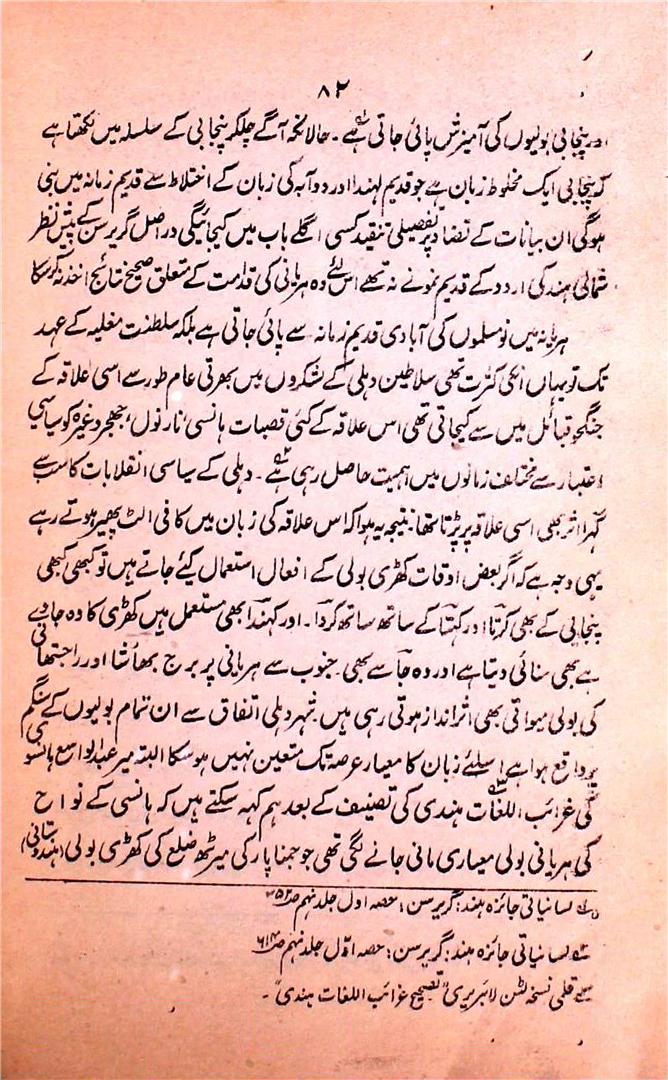 ۸۲
اور پنجابی بولیوں کی آمیزش پائی جاتی ہے۔ حالانکہ آگے چلکر پنجابی کے سلسلہ میں لکھتا ہے
کہ پنجابی ایک مخلوط زبان ہے جو قدیم لہندا اور دوآبہ کی زبان کے اختلاط سے قدیم زمانہ میں بنی
ہوگی ان بیانات کے تضاد پر تفصیلی تنقید کسی اگلے باب میں کیجائیگی دراصل گریرسن کے پیش نظر
شمالی ہند کی اردو کے قدیم نمونے نہ تھے اس لئے وہ ہریانی کی قدامت کے متعلق صحیح نتائج اخذ نہ کرسکا
ہریانہ میں نو مسلموں کی آبادی قدیم زمانہ سے پائی جاتی ہے بلکہ سلطنت مغلیہ کے عہد
تک تو یہاں انکی کثرت تھی سلاطین دہلی کے لشکروں میں بھرتی عام طور سے اسی علاقہ کے
جنگجو قبائل میں سے کیجاتی تھی اس علاقہ کے کئی قصبات ہانسی، نارنول، جھجر وغیرہ کو سیاسی
اعتبار سے مختلف زمانوں میں اہمیت حاصل رہی ہے۔ دہلی کے سیاسی انقلابات کا سب سے
گہرا اثر بھی اسی علاقہ پر پڑتا تھا نتیجہ یہ ہوا کہ اس علاقہ کی زبان میں کافی الٹ پھیر ہوتے رہے
یہی وجہ ہے کہ اگر بعض اوقات کھڑی بولی کے افعال استعمال کئے جاتے ہیں تو کبھی کبھی
پنجابی کے بھی کرتا اور کہتا کے ساتھ ساتھ کردا۔ اور کہندا بھی مستعمل ہیں کھڑی کا وہ جاوے
ہے بھی سنائی دیتا ہے اور وہ جا سے بھی۔ جنوب سے ہریانی پر برج بھاشا اور راجستھانی
کی بولی میواتی بھی اثر انداز ہوتی رہی ہیں شہر دہلی اتفاق سے ان تمام بولیوں کے سنگم
پر واقع ہوا ہے اسلئے زبان کا معیار عرصہ تک متعین نہیں ہوسکا البتہ میر عبدالواسع ہانسوی
کی غرائب اللغات ہندی کی تصنیف کے بعد ہم کہہ سکتے ہیں کہ ہانسی کے نواح
کی ہریانی بولی معیاری مانی جانے لگی تھی جو جمنا پار کی میرٹھ ضلع کی کھڑی بولی (ہندوستانی)
لسانیاتی جائزہ ہند: گریرسن: حصہ اول جلد نہم
لسانیاتی جائزہ ہند: گریرسن: حصہ اوّل جلد نہم
قلمی نسخہ لٹن لائبریری "تصحیح غرائب اللغات ہندی"۔